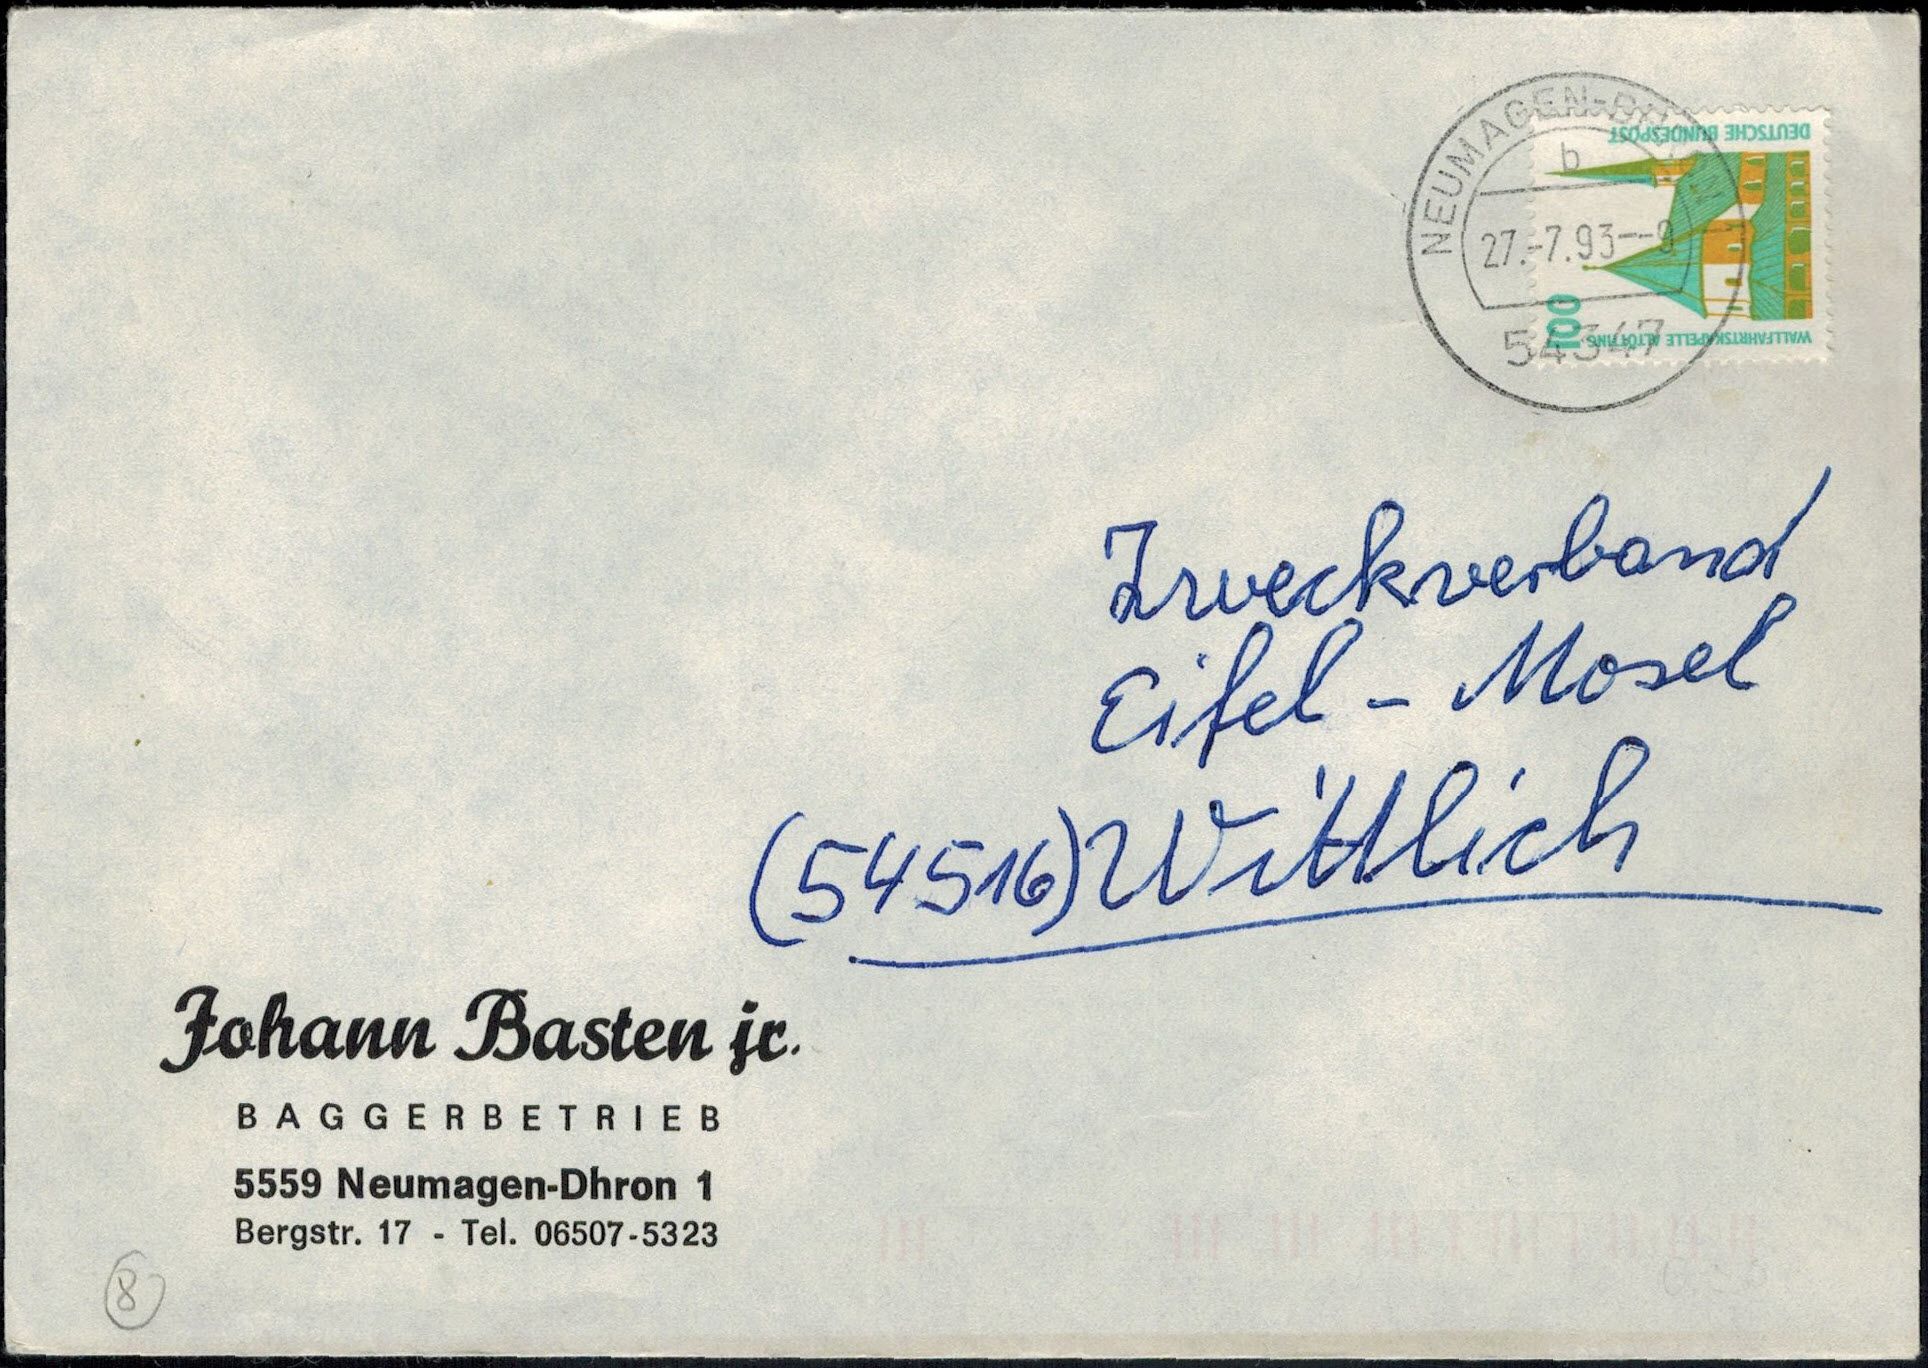 NEUMAGEN-DHRON
b
27.-7.93--9
54347
DEUTSCHE BUNDESPOST
100
WALLFAHRTSKAPELLE ALTÖTTING
Zweckverband
Eifel - Mosel
(54516) Wittlich
Johann Basten jr.
BAGGERBETRIEB
5559 Neumagen-Dhron 1
Bergstr. 17 - Tel. 06507-5323
8